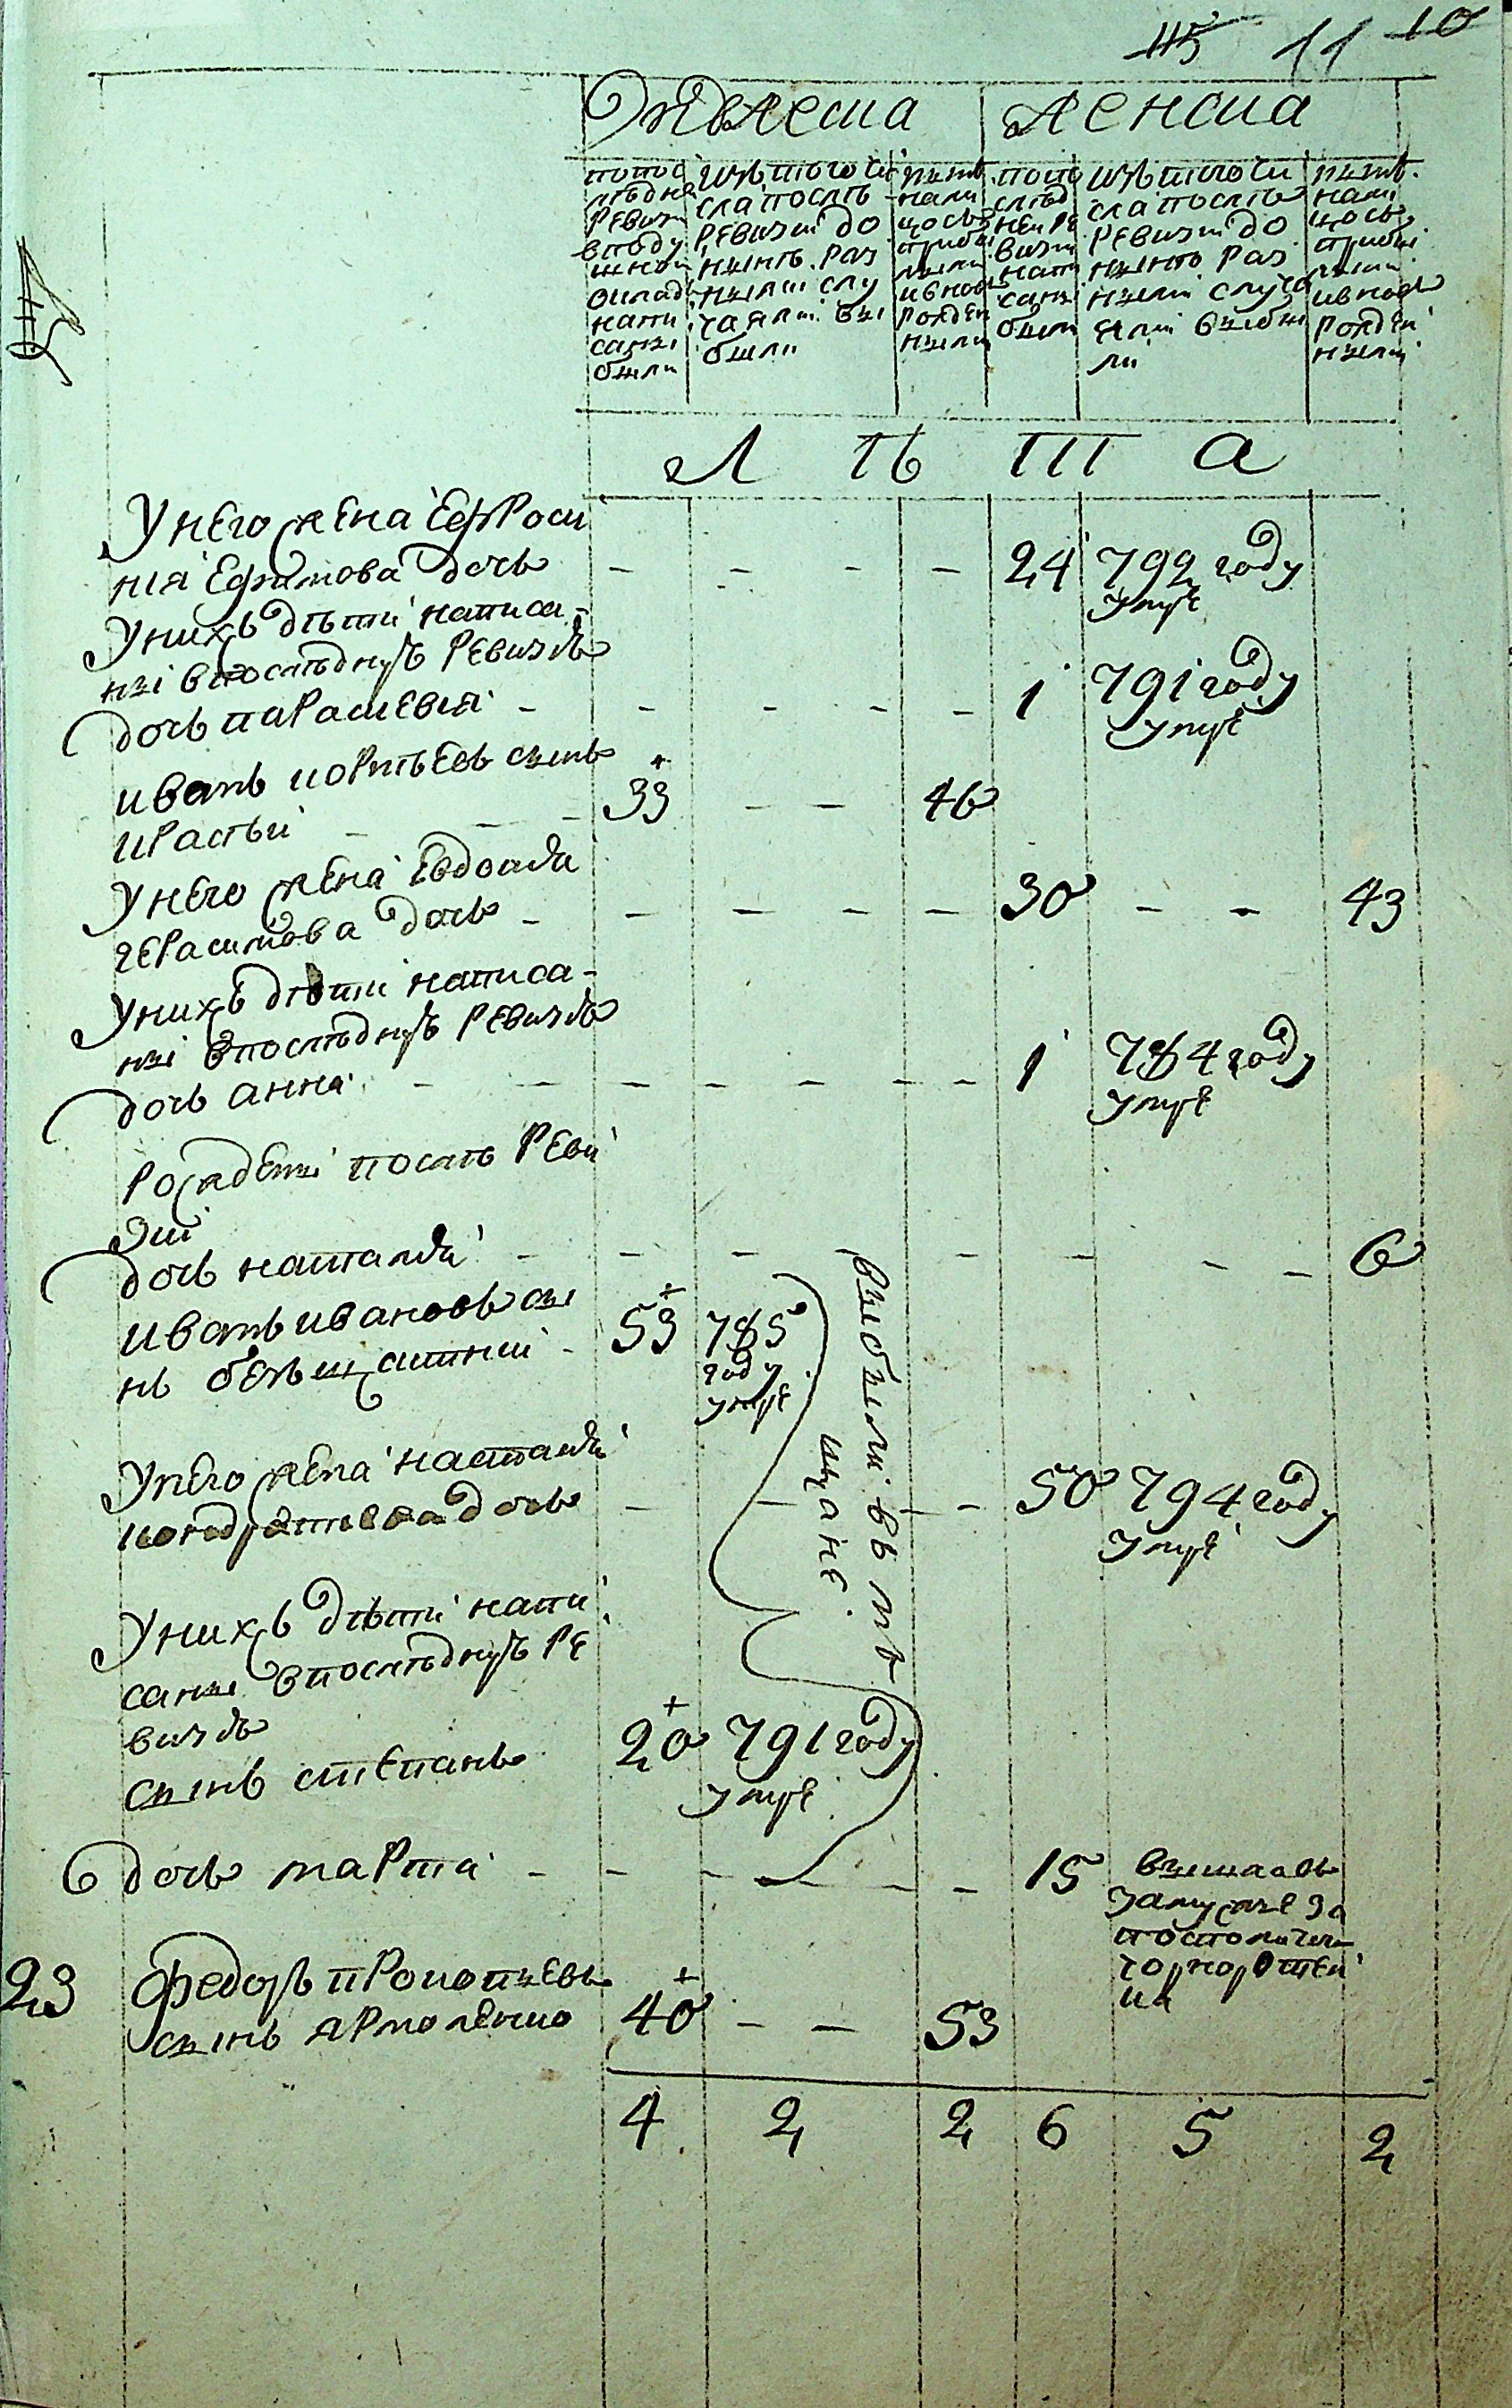 115 11 10
Мужеска Женска
попос лѣдне ревизи вподу шнои оклад напи саны были
изъ того чи сла послѣ ревизи до нынѣ раз ными слу чаями вы были
нынѣ нали цось прибы лыми ивновь рожден ными
попо слѣд неи ре визи напи саны были
изъ того чи сла послѣ ревизи до нынѣ раз ными случа ями выбы ли
нынѣ нали цось прибы лыми ивновь рожден ными
Л Ѣ Т А
Унего жена Ефроси
нія Ефимова дочь - - - - 24 792 году
умре
Унихъ дѣти написа-
ны впослѣднуъ ревизѣ
дочь парасіевія - - - - - 1 791 году
умре
иванъ корнѣевъ сынъ
красный - - - 33 - - 46
Унего жена Евдокия
герасимова дочь - - - - - 30 - - 43
Унихъ дѣти написа-
ны впослѣднуъ ревизѣ
дочь анна - - - - - - - - 1 784 году
умре
рождены послѣ реви
зии
дочь наталия - - - - - - - 6
иванъ ивановъ сы
нъ безщитный - 53 785
году
умре
выбыли въ мѣ
щане
Унего жена наталия
кондратьева дочь - - - - 50 794 году
умре
Унихъ дѣти напи
саны впослѣднуъ ре
визѣ
сынъ степанъ 20 791 году
умре
дочь марта - - - - - 15 вышла въ
замужѣ за
посполитого

23 Федоръ прокопьевъ
сынъ ярмоленко 40 - - 53
4 2 2 6 5 2